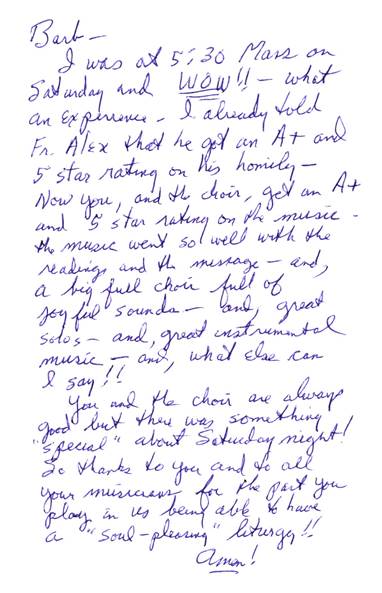 Barb—
I was at 5:30 Mass on
Saturday and WOW!! — what
an experience. I already told
Fr. Alex that he got an A+ and
5 star rating on his homily —
Now you, and the choir, get an A+
and 5 star rating on the music -
the music went so well with the
readings and the message — and,
a big full choir full of
joyful sounds — and, great
solos — and, great instrumental
music — and, what else can
I say!!
You and the choir are always
good but there was something
"special" about Saturday night!
So thanks to you and to all
your musicians for the part you
play in us being able to have
a "soul-pleasing" liturgy!!
Amen!